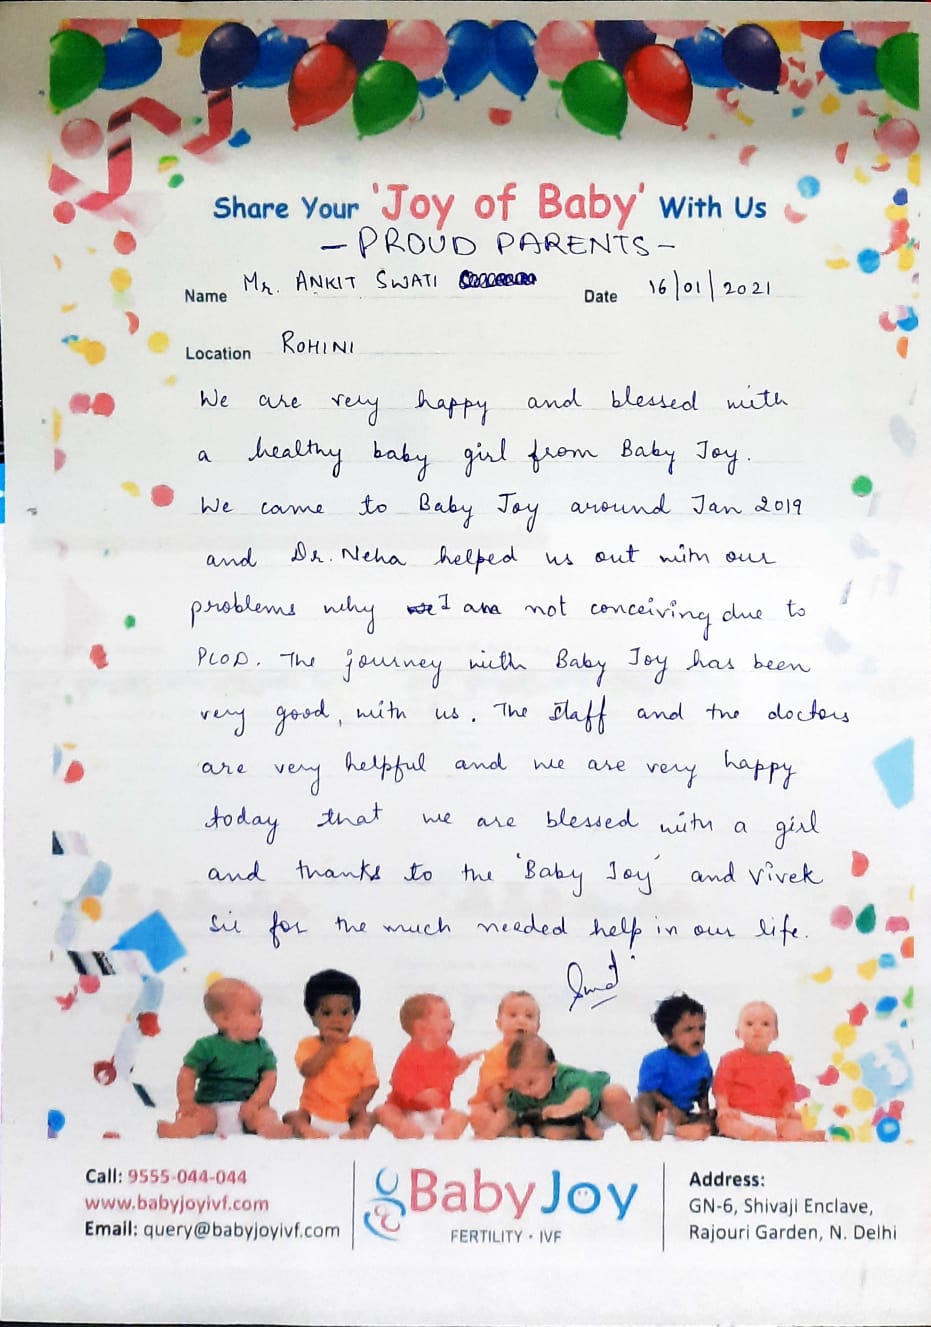 Share Your 'Joy of Baby' With Us
- PROUD PARENTS -
Name Mr. ANKIT SWATI Date 16/01/2021
Location ROHINI
We are very happy and blessed with
a healthy baby girl from Baby Joy.
We came to Baby Joy around Jan 2019
and Dr. Neha helped us out with our
problems why I am not conceiving due to
PCOD. The journey with Baby Joy has been
very good, with us. The staff and the doctors
are very helpful and we are very happy
today that we are blessed with a girl
and thanks to the 'Baby Joy' and Vivek
Sir for the much needed help in our life.
Call: 9555-044-044
www.babyjoyivf.com
Email: query@babyjoyivf.com
Baby Joy
FERTILITY · IVF
Address:
GN-6, Shivaji Enclave,
Rajouri Garden, N. Delhi